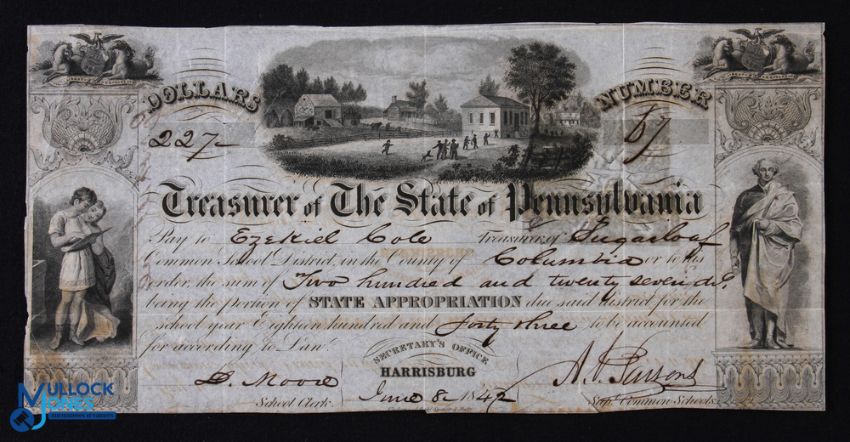 DOLLARS NUMBER
227 87
Treasurer of The State of Pennsylvania
Pay to Ezekiel Cole Treasurer of Sugarloaf
Common School District, in the County of Columbia or to his
order, the sum of Two hundred and twenty seven do.
being the portion of STATE APPROPRIATION due said district for the
school year Eighteen hundred and forty three to be accounted
for according to Law.
SECRETARY'S OFFICE
HARRISBURG
D. Moore June 8 1842 A. V. Parsons
School Clerk. Supt. Common Schools.
MULLOCK
JONES